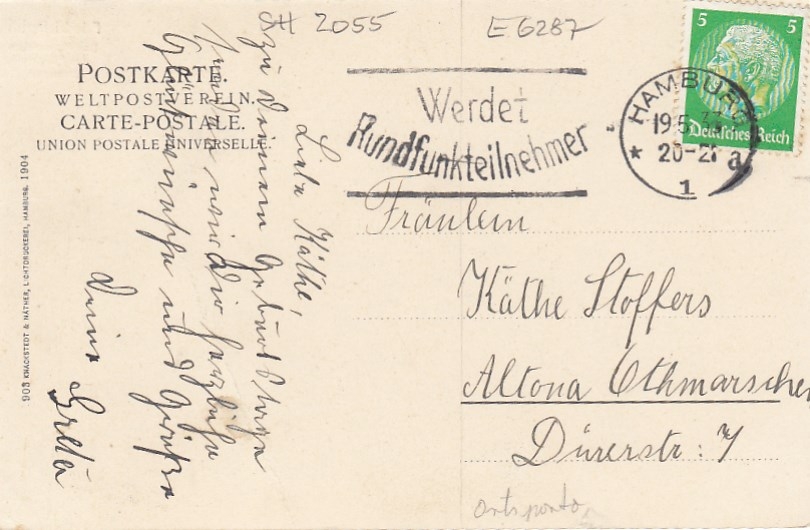 AH 2055
E 6287
5 5
Deutsches Reich
HAMBURG
19.5.33
20-21 a
1
Werdet
Rundfunkteilnehmer
POSTKARTE.
WELTPOSTVEREIN.
CARTE-POSTALE.
UNION POSTALE UNIVERSELLE.
903 KNACKSTEDT & NÄTHER, LICHTDRUCKEREI, HAMBURG. 1904
Liebe Käthe,
zu Deinem Geburtstage
senden wir Dir herzliche
Glückwünsche und Grüße
Deine Greta
Fräulein
Käthe Stoffers
Altona Othmarschen
Dürerstr: 7
ortsporto